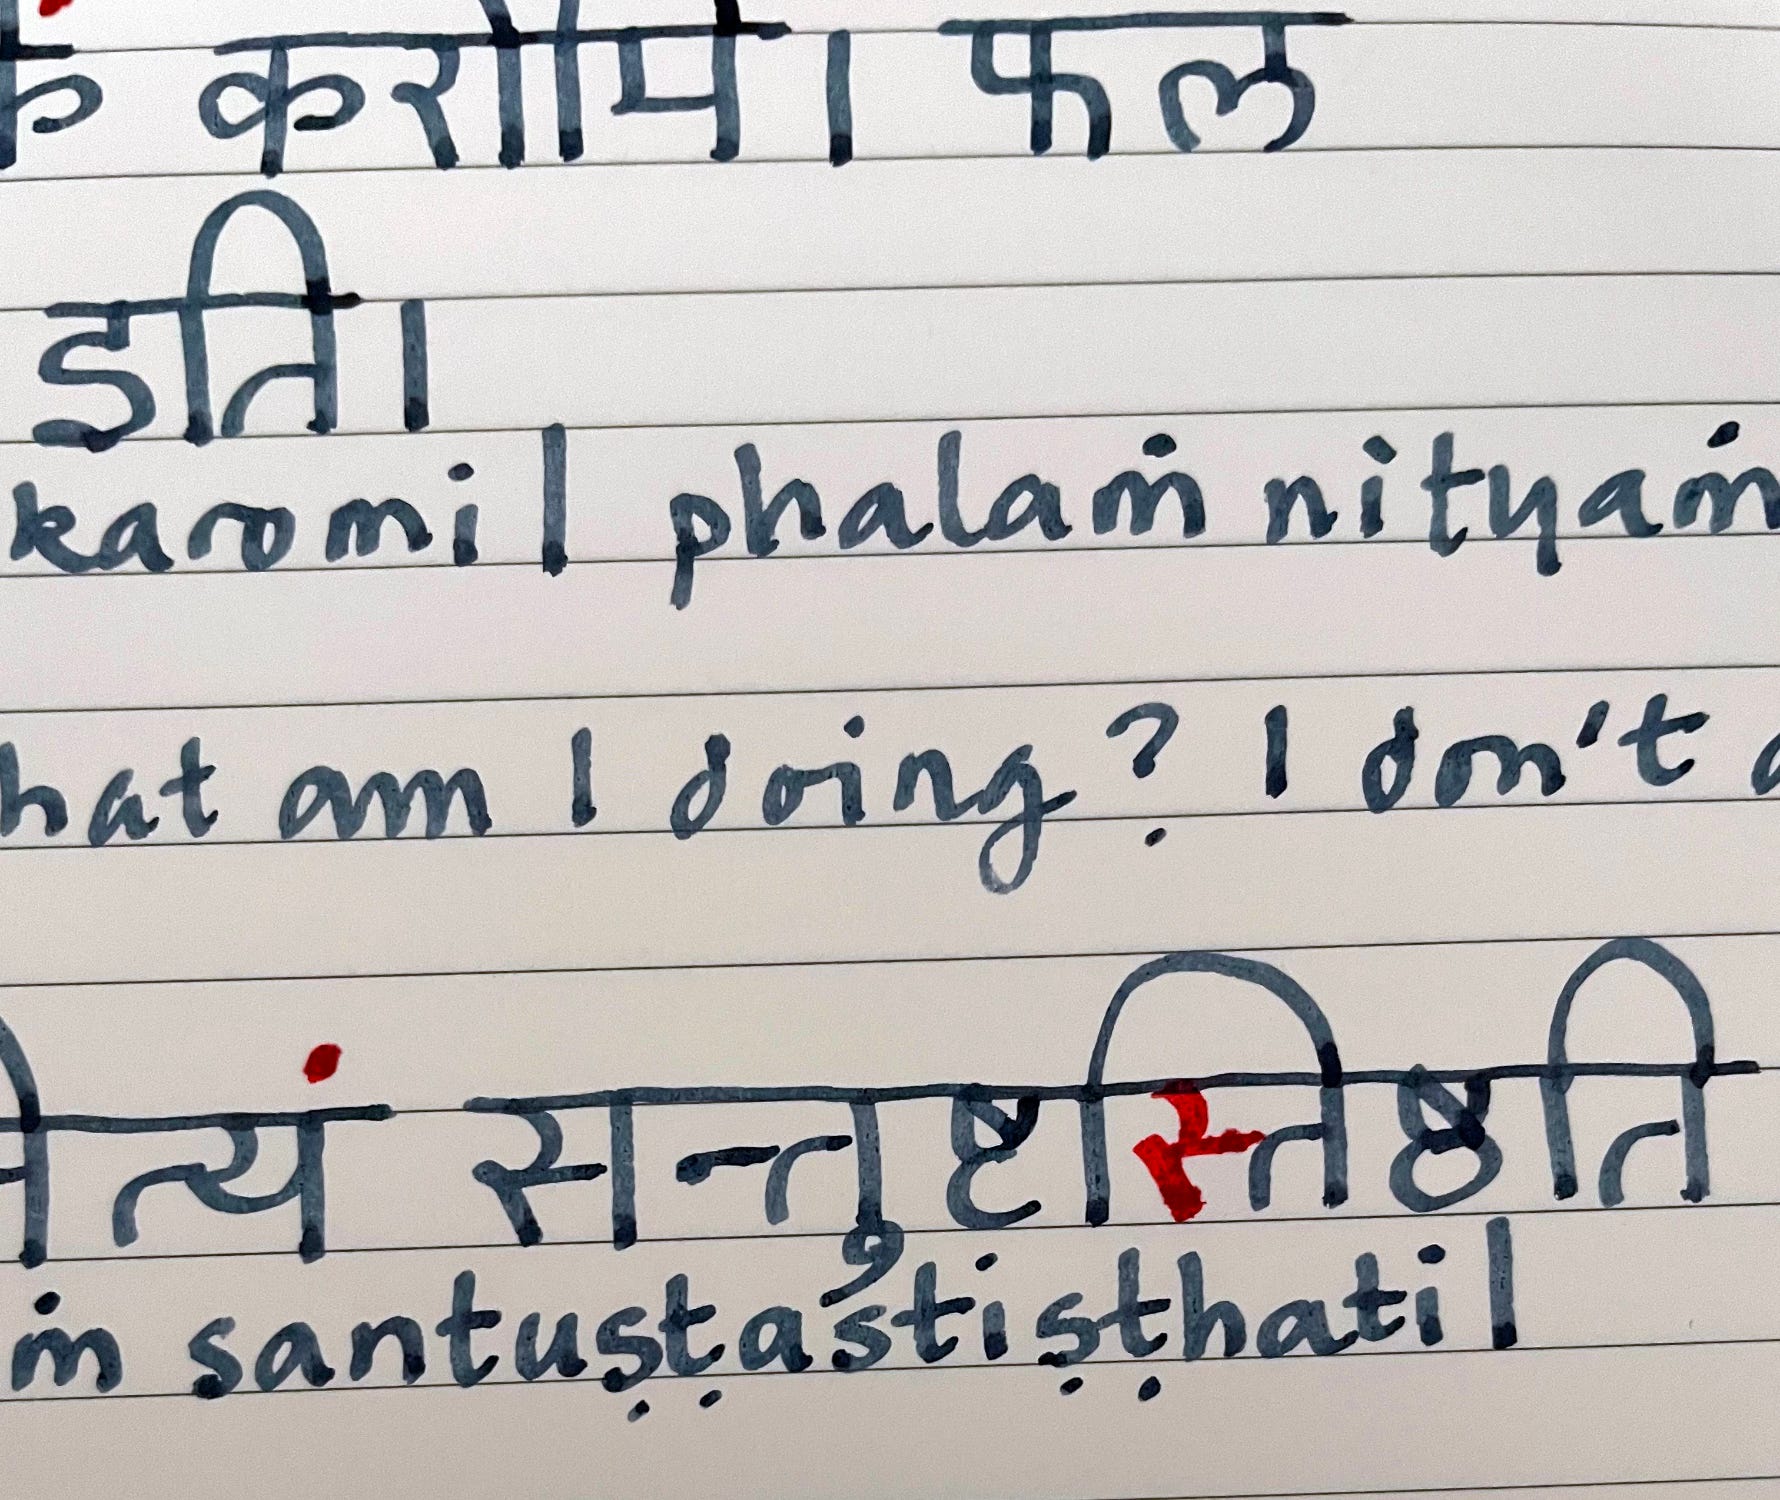 करोमि। फल
इति।
karomi | phalaṁ nityaṁ
hat am I doing? I don't
नित्यं सन्तुष्टस्तिष्ठति
ṁ santuṣṭastiṣṭhati |